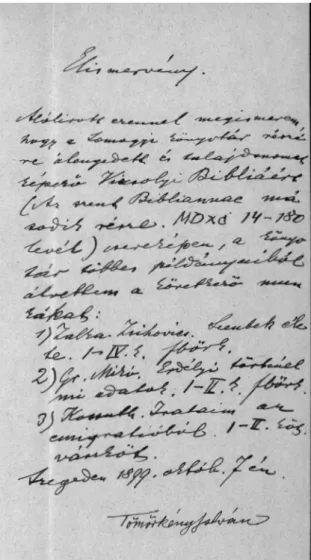 Elismervény.
Alólirott ezennel megismerem,
hogy a Somogyi könyvtár részé-
re átengedett és tulajdonomat
képező Vizsolyi Bibliáért
(Az szent Bibliannac má-
sodik része. MDXC 14-180
levél) csereképen, a könyv
tár többes példányaiból
átvettem a következő mun
kákat:
1) Zalka. Szentek éle
te. I-IV. k. fbőrk.
2) Gr. Mikó. Erdélyi történel
mi adatok. I-II. k. fbőrk.
3) Kossuth. Irataim az
emigratióból. I-II. köt.
Szegeden 1899. októb. 7 én.
Tömörkény István